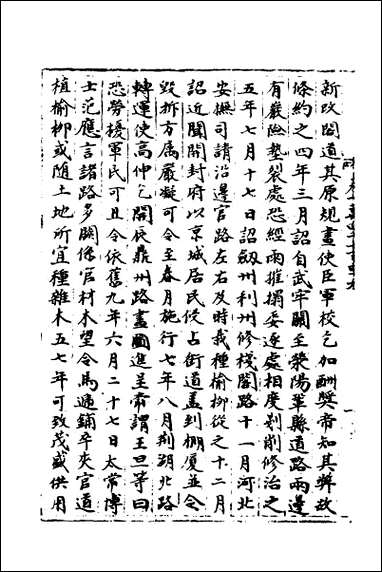 新改閣道其原規畫使臣軍校乞加酬獎帝知其弊故
條約之四年三月詔自武牢關至滎陽鞏縣道路兩邊
有巖險墊裂處恐經雨摧塌委逐處相度剗削修治之
五年七月十七日詔劔州利州修棧閣路十一月河北
安撫司請沿邊官路左右及時栽種榆柳從之十二月
詔近聞開封府以京城居民侵占街道蓋到棚厦並令
毀拆方属嚴凝可令至春月施行七年八月荆湖北路
轉運使高仲乞開辰鼎州路畫圖進呈帝謂王旦等曰
恐勞擾軍民可且令依舊九年六月二十七日太常博
士范應言諸路多闕係官材木望令馬遞鋪卒夾官道
植榆柳或隨土地所宜種雜木五七年可致茂盛供用